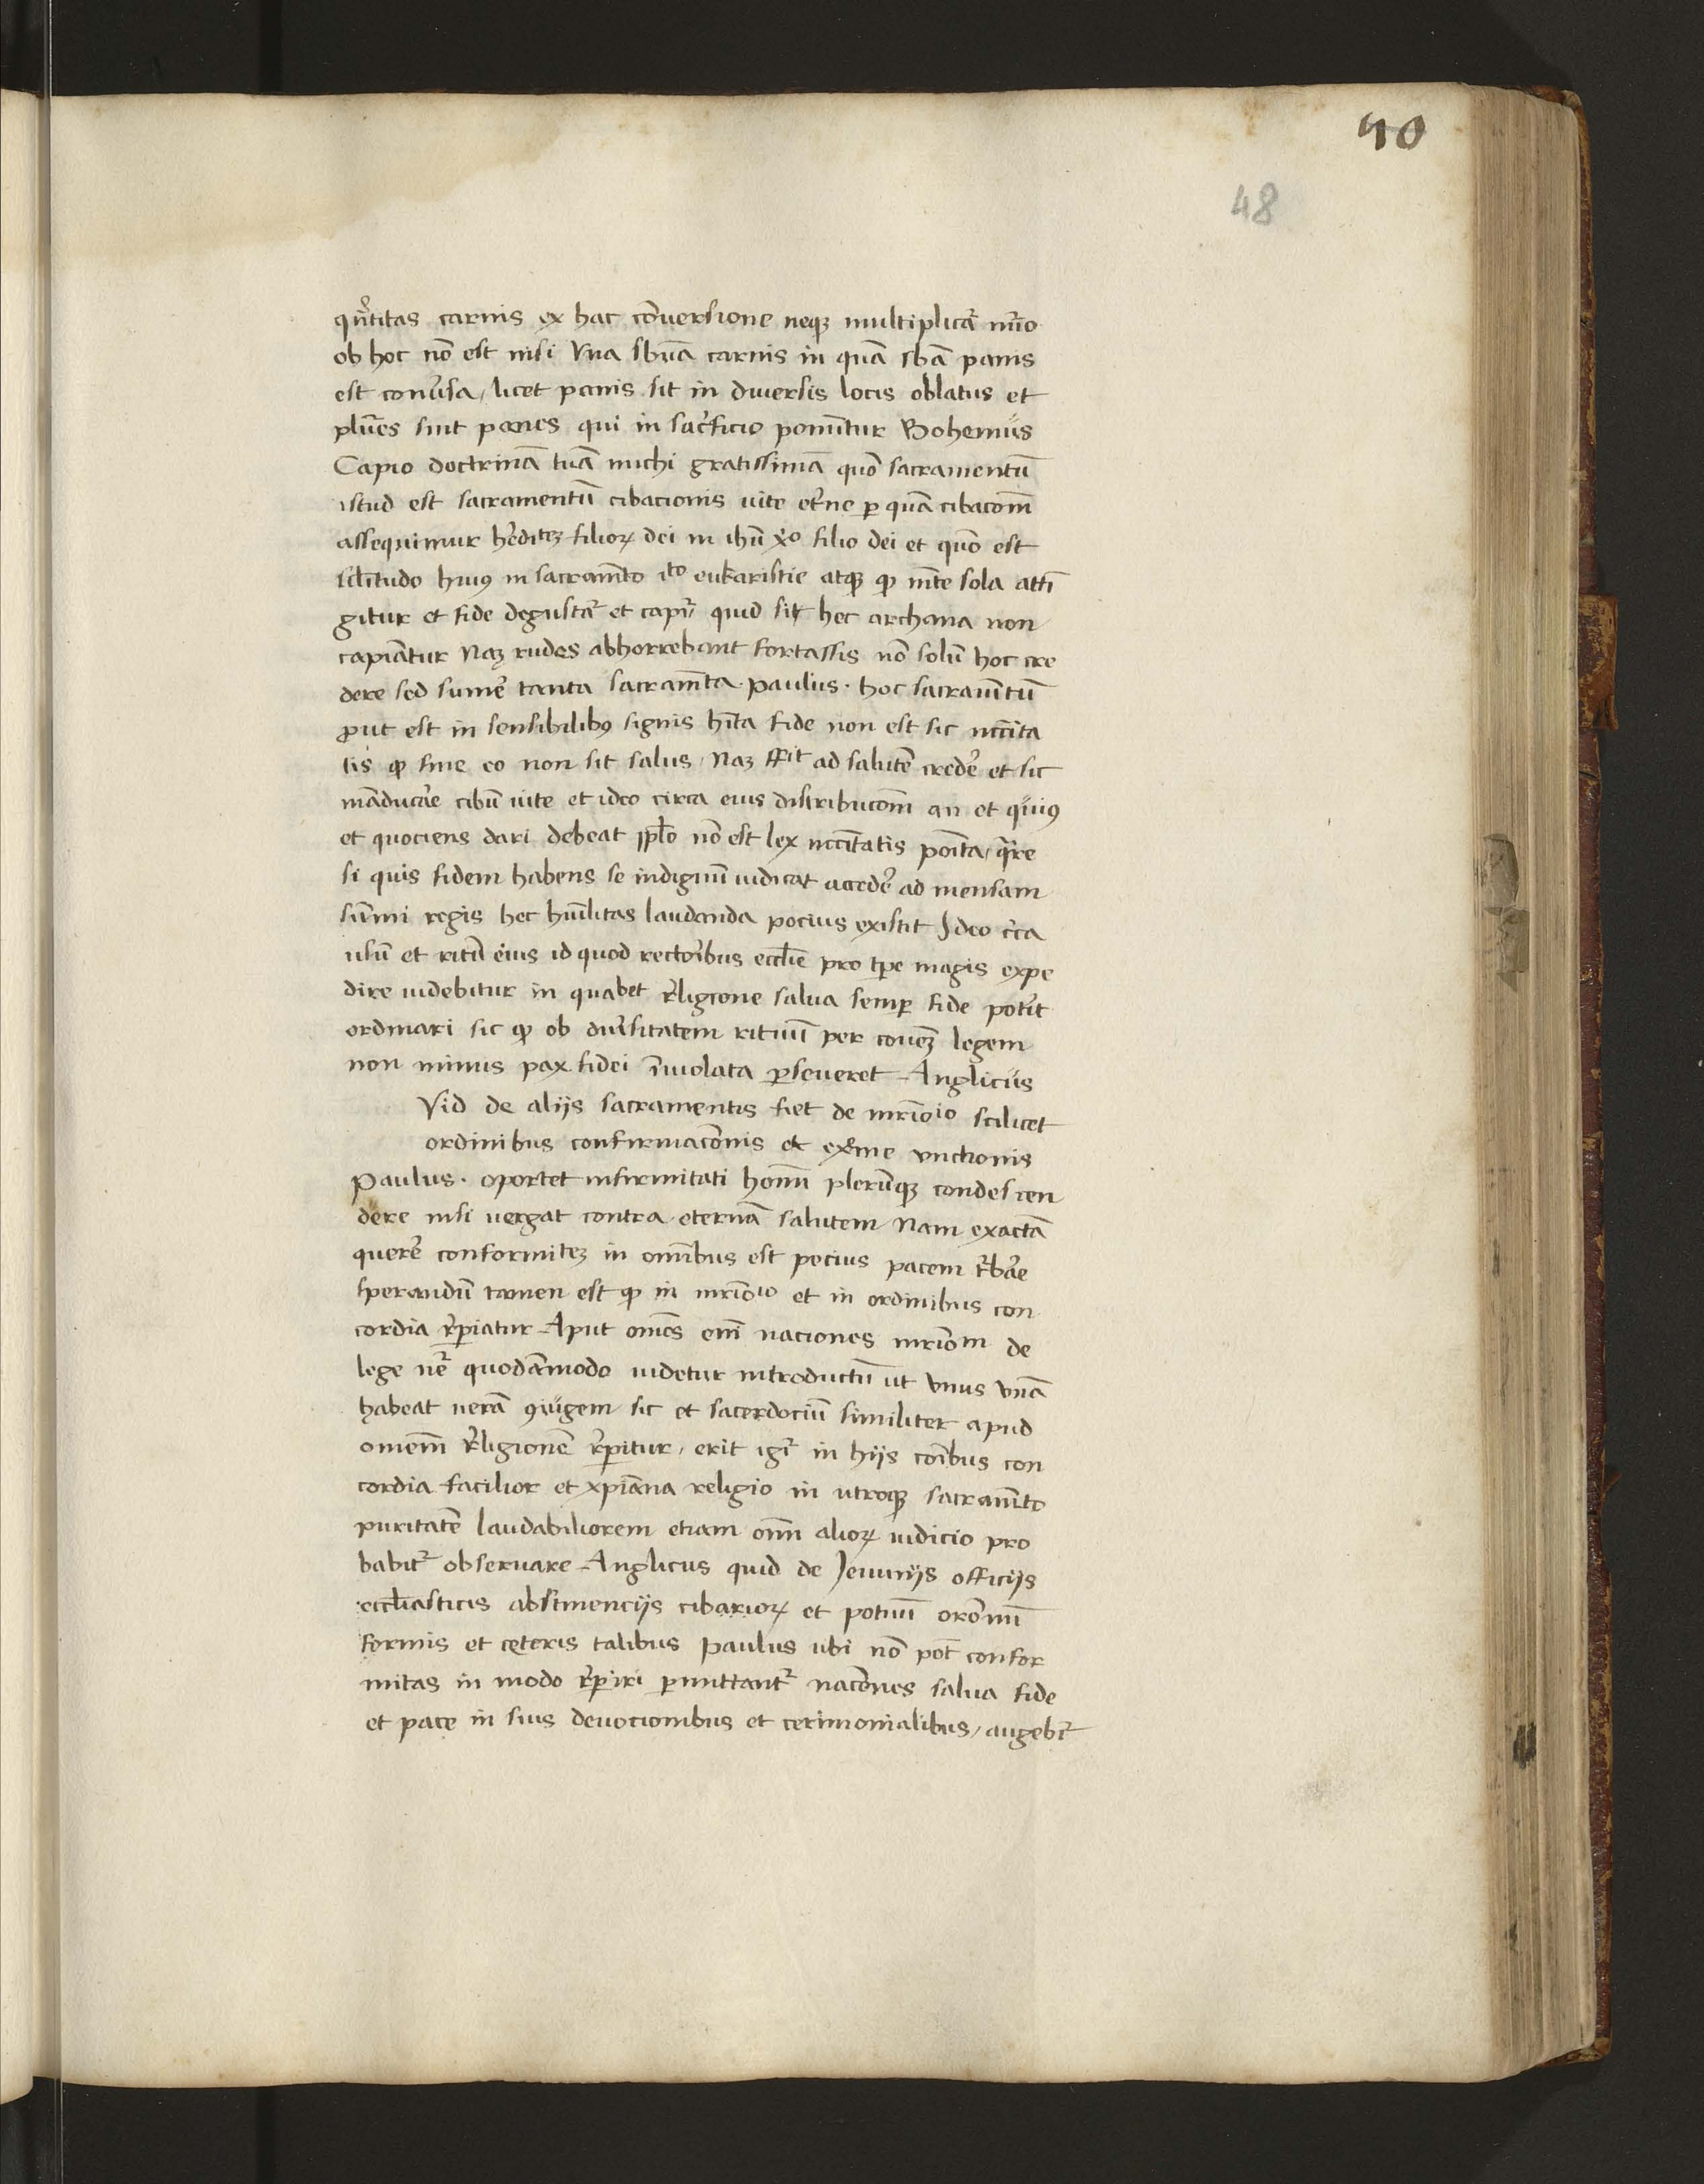 40
48
qñtitas carnis ex hac cōversione neqꝫ multiplicat᷑ nūo
ob hoc nō est nisi Vna sbuā carnis in quā sbā panis
est conu̾sa, licet panis sit in diversis locis oblatus et
plures sint panes qui in sac̾ficio ponūtur Bohemus
Capio doctrinā tuā michi gratissimā quō sacramentū
istud est sacramentū cibacionis uite et̾ne ꝑ quā cibacōm̄
assequimur hēditeꝫ filioꝝ dei in ihū xp̄o filio dei et quō est
silītudo huiꝰ in sacramēto ito eukaristie atqꝫ ꝙ mēte sola attī
gitur et fide degustat᷑ et capit᷑ quid sit hec archana non
capiātur Naꝫ rudes abhorrebant fortassis nō solū hoc cre
dere sed sume̾ tanta sacramēta. Paulus. hoc sacramentū
ꝓut est in sensibilibꝰ signis hīta fide non est sic nccīta
tis ꝙ sine eo non sit salus, Naꝫ sfit ad salutē crede̾ et sic
māducare cibū uite et ideo circa eius distribucōm̄ an et quiuꝰ
et quociens dari debeat ꝓplo nō est lex nccītatis poīta, qre
si quis fidem habens se indignū iudicat accede̾ ad mensam
sūmi regis hec hūilitas laudanda pocius existit Ideo c̾ca
usū et ritū eius id quod rectoribus eccl̄ie pro tpe magis expe
dire uidebitur in quabet r̾ligione salua semꝑ fide pot̾it
ordinari sic ꝙ ob diu̾sitatem rituū per cōueꝫ legem
non minus pax fidei īuiolata ꝑseueret Anglicus
Vid de alijs sacramentis fiet de mr̄ioio scilicet
ordinibus confirmacōnis et ext̾me unctionis
Paulus. oportet infirmitati hoīm plerūqꝫ condescen
dere nisi vergat contra eternā salutem Nam exactā
quere̾ conformiteꝫ in om̄ibus est pocius pacem t̾bare
sperandū tamen est ꝙ in mr̄ioio et in ordinibus con
cordia r̾ꝑiatur Aput om̄es em̄ naciones mr̄iom de
lege ne᷑ quodāmodo uidetur introductū ut vnus vnā
habeat uerā ꝯiugem sic et sacerdociū similiter apud
omem̄ r̾ligionē r̾ꝑitur, erit igr̄ in hijs cōibus con
cordia facilior et xp̄iana religio in utroqꝫ sacramēto
puritatē laudabiliorem etiam om̄i alioꝝ iudicio pro
babit᷑ obseruare Anglicus quid de Jeiunijs officijs
eccl̄iasticis abstinencijs cibarioꝝ et potuū orōnū
formis et ceteris talibus Paulus ubi nō pōt confor
mitas in modo r̾ꝑiri ꝑmittant᷑ nacōnes salua fide
et pace in suis deuocionibus et cerimonialibus, augebit᷑